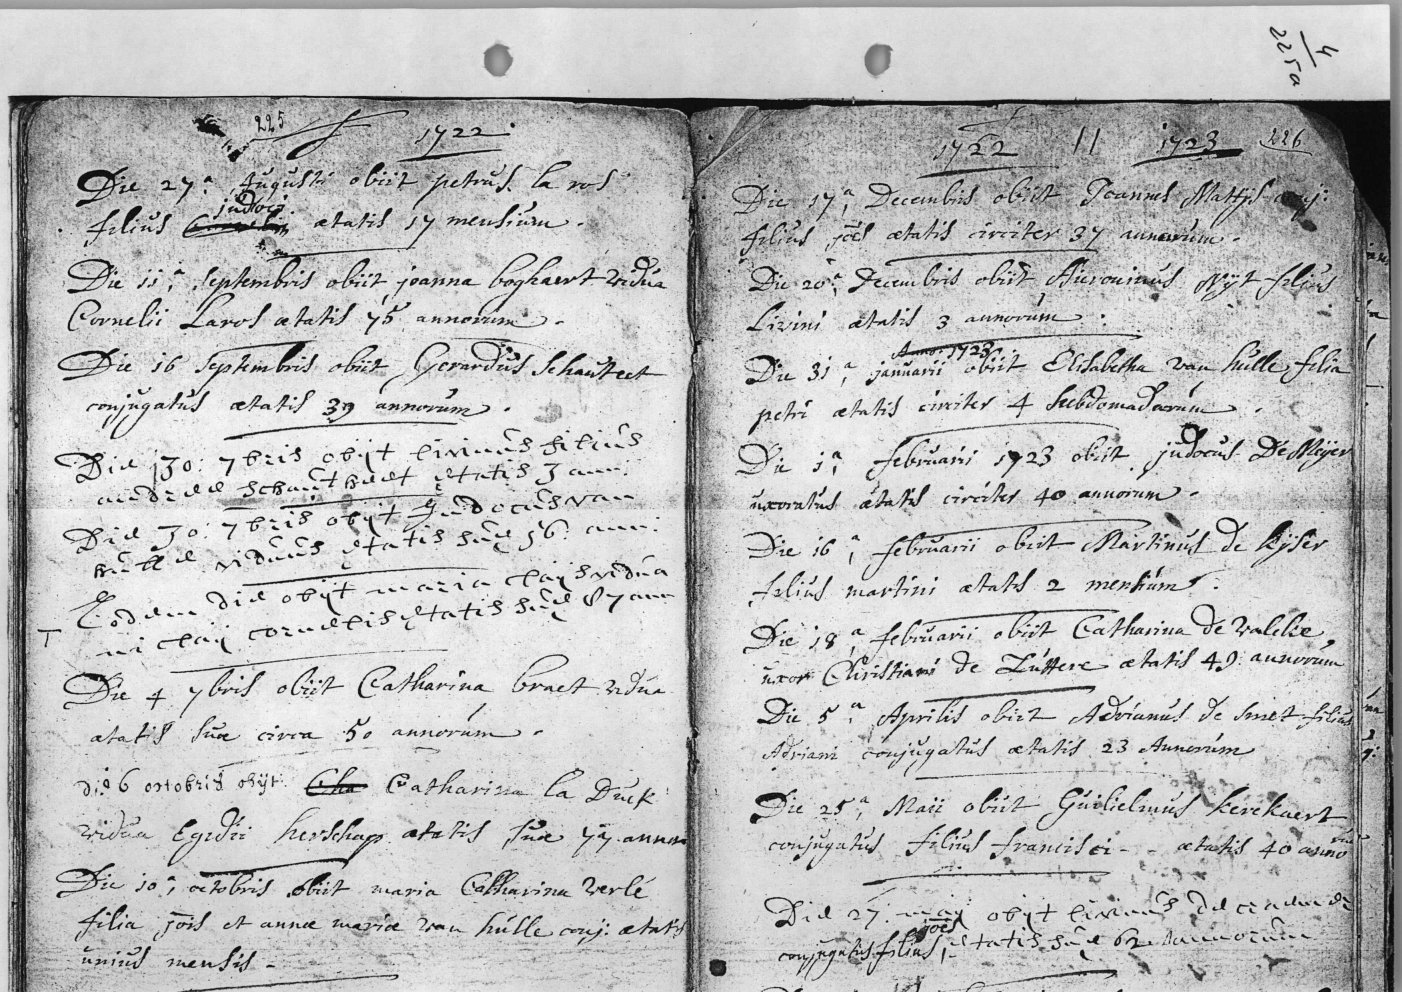 4
225a
225 1722
Die 27.a Augusti obiit petrus la ros
judoci
filius ætatis 17 mensium.
Die 11.a septembris obiit joanna boghaert vidua
Cornelii Laros ætatis 75 annorum.
Die 16 septembris obiit Gerardus Schautteet
conjugatus ætatis 39 annorum.
Die 30: 7bris obijt livinus filius
andreae schautheet ætatis 3 ann:
Die 30: 7bris obijt Judocus van
hulle viduus ætatis suæ 56: ann:
Eodem die obijt maria claijs vidua
cornelis ætatis suæ 87 ann
Die 4 7bris obiit Catharina braet vidua
ætatis suæ circa 50 annorum.
die 6 octobris obijt: Cha Catharina la Duck
vidua Egidii herschap ætatis suæ 77 annor
Die 10.a octobris obiit maria Catharina verlé
filia jois et annæ mariæ van hulle conj: ætatis
unius mensis.
1722 11 1723 226
Die 17.a Decembris obiit Joannes Mattijs conj:
filius joes ætatis circiter 37 annorum.
Die 20.a Decembris obiit Hieronimus Nijt filius
Livini ætatis 3 annorum.
Anno: 1723
Die 31.a januarii obiit Elisabetha van hulle filia
petri ætatis circiter 4 hebdomadarum.
Die 1.a februarii 1723 obiit judocus De Meijer
uxoratus ætatis circiter 40 annorum.
Die 16.a februarii obiit Martinus de Kijser
filius martini ætatis 2 mensium.
Die 18.a februarii obiit Catharina de valcke
uxor Christiani de Zuttere ætatis 49 annorum
Die 5.a Aprilis obiit Adrianus de smet filius
Adriani conjugatus ætatis 23 Annorum
Die 25.a Maii obiit Guilielmus kerckaert
conjugatus filius francisci - - ætatis 40 anno
rum
Die 27: maij obijt livinus de
joes
conjugatus filius, ætatis suæ 62 annorum